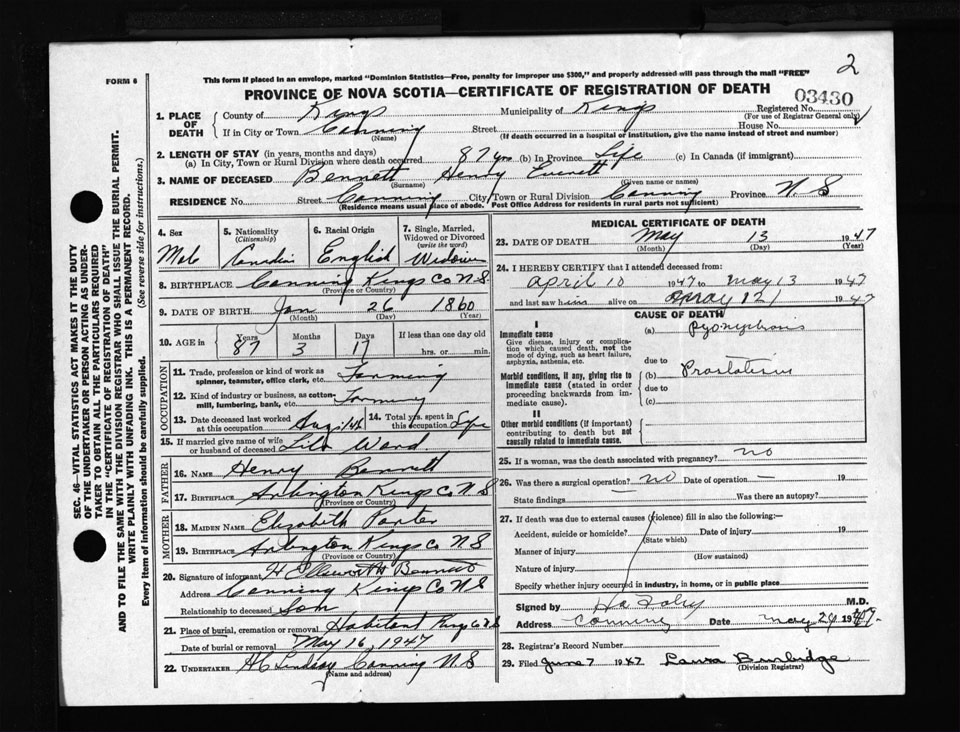 2
FORM 6
This form if placed in an envelope, marked "Dominion Statistics—Free, penalty for improper use $300," and properly addressed will pass through the mail "FREE"
PROVINCE OF NOVA SCOTIA—CERTIFICATE OF REGISTRATION OF DEATH
03430
SEC. 46—VITAL STATISTICS ACT MAKES IT THE DUTY
OF THE UNDERTAKER OR PERSON ACTING AS UNDER-
TAKER TO OBTAIN ALL THE PARTICULARS REQUIRED
IN THE "CERTIFICATE OF REGISTRATION OF DEATH"
AND TO FILE THE SAME WITH THE DIVISION REGISTRAR WHO SHALL ISSUE THE BURIAL PERMIT.
WRITE PLAINLY WITH UNFADING INK. THIS IS A PERMANENT RECORD.
Every item of information should be carefully supplied. (See reverse side for instructions.)
1. PLACE OF DEATH
County of Kings Municipality of Kings Registered No.
(For use of Registrar General only)
If in City or Town Canning Street House No.
(Name) (If death occurred in a hospital or institution, give the name instead of street and number)
2. LENGTH OF STAY (in years, months and days)
(a) In City, Town or Rural Division where death occurred 87 yrs (b) In Province Life (c) In Canada (if immigrant)
3. NAME OF DECEASED Bennett Henry Everett
(Surname) (Given name or names)
RESIDENCE No. Street Canning City/Town or Rural Division Canning Province N.S
(Residence means usual place of abode. Post Office Address for residents in rural parts not sufficient)
4. Sex 5. Nationality (Citizenship) 6. Racial Origin 7. Single, Married, Widowed or Divorced (write the word)
Male Canadian English Widower
8. BIRTHPLACE Canning Kings Co N.S
(Province or Country)
9. DATE OF BIRTH Jan 26 1860
(Month) (Day) (Year)
10. AGE in Years Months Days If less than one day old
87 3 17 hrs. or min.
OCCUPATION
11. Trade, profession or kind of work as spinner, teamster, office clerk, etc. Farming
12. Kind of industry or business, as cotton-mill, lumbering, bank, etc. Farming
13. Date deceased last worked at this occupation Aug 1/46 14. Total yrs. spent in this occupation Life
15. If married give name of wife or husband of deceased Lila Ward
FATHER
16. NAME Henry Bennett
17. BIRTHPLACE Arlington Kings Co N S
MOTHER
18. MAIDEN NAME Elizabeth Porter
19. BIRTHPLACE Arlington Kings Co N.S
(Province or Country)
20. Signature of informant H Ellsworth Bennett
Address Canning Kings Co N.S
Relationship to deceased Son
21. Place of burial, cremation or removal Habitant Kings Co N S
Date of burial or removal May 16, 1947
22. UNDERTAKER H C Lindsay Canning N S
(Name and address)
MEDICAL CERTIFICATE OF DEATH
23. DATE OF DEATH May 13 1947
(Month) (Day) (Year)
24. I HEREBY CERTIFY that I attended deceased from:
April 10 1947 to May 13 1947
and last saw him alive on May 12 1947
CAUSE OF DEATH
I
Immediate cause (a) Pyonephrosis
Give disease, injury or complica-
tion which caused death, not the
mode of dying, such as heart failure,
asphyxia, asthenia, etc. due to
Morbid conditions, if any, giving rise to (b) Prostatism
immediate cause (stated in order due to
proceeding backwards from im-
mediate cause). (c)
II
Other morbid conditions (if important)
contributing to death but not
causally related to immediate cause.
25. If a woman, was the death associated with pregnancy? no
26. Was there a surgical operation? no Date of operation — 19
State findings Was there an autopsy?
27. If death was due to external causes (violence) fill in also the following:—
Accident, suicide or homicide? Date of injury 19
(State which)
Manner of injury
(How sustained)
Nature of injury
Specify whether injury occurred in industry, in home, or in public place
Signed by M.D.
Address Canning Date May 29 1947.
28. Registrar's Record Number
29. Filed June 7 1947 Laura Burbidge
(Division Registrar)